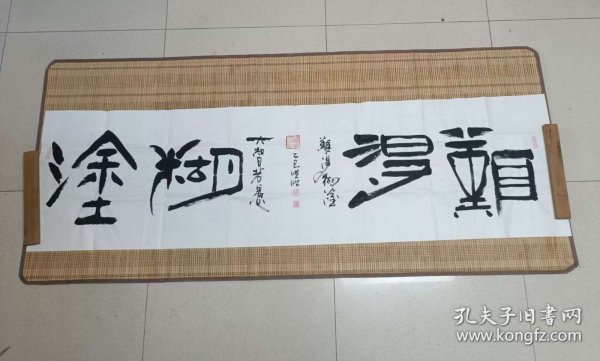 難得
難得糊塗
乙巳
大智若愚
糊塗
孔夫子旧书网
www.kongfz.com